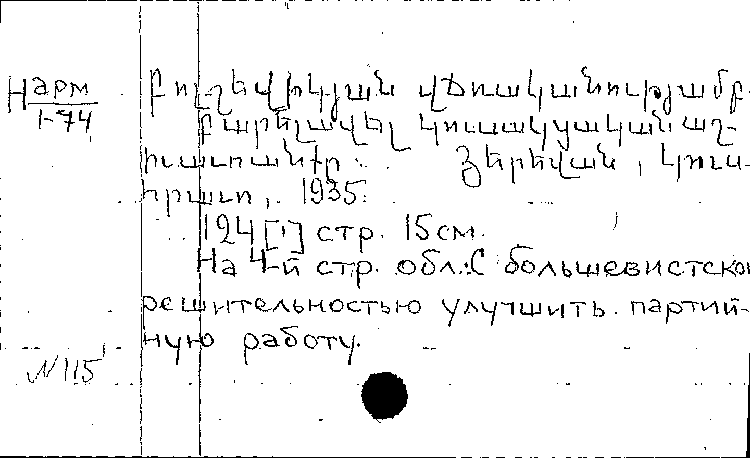 Нарм
1-74
Բոլշեվիկյան վճռականությամբ
բարելավել կուսակցական աշ-
խատանքը. Յերեվան, կուս-
հրատ, 1935.
124 [1] стр. 15см.
На 4-й стр. обл.: С большевистской
решительностью улучшить партий-
ную работу.
N 115